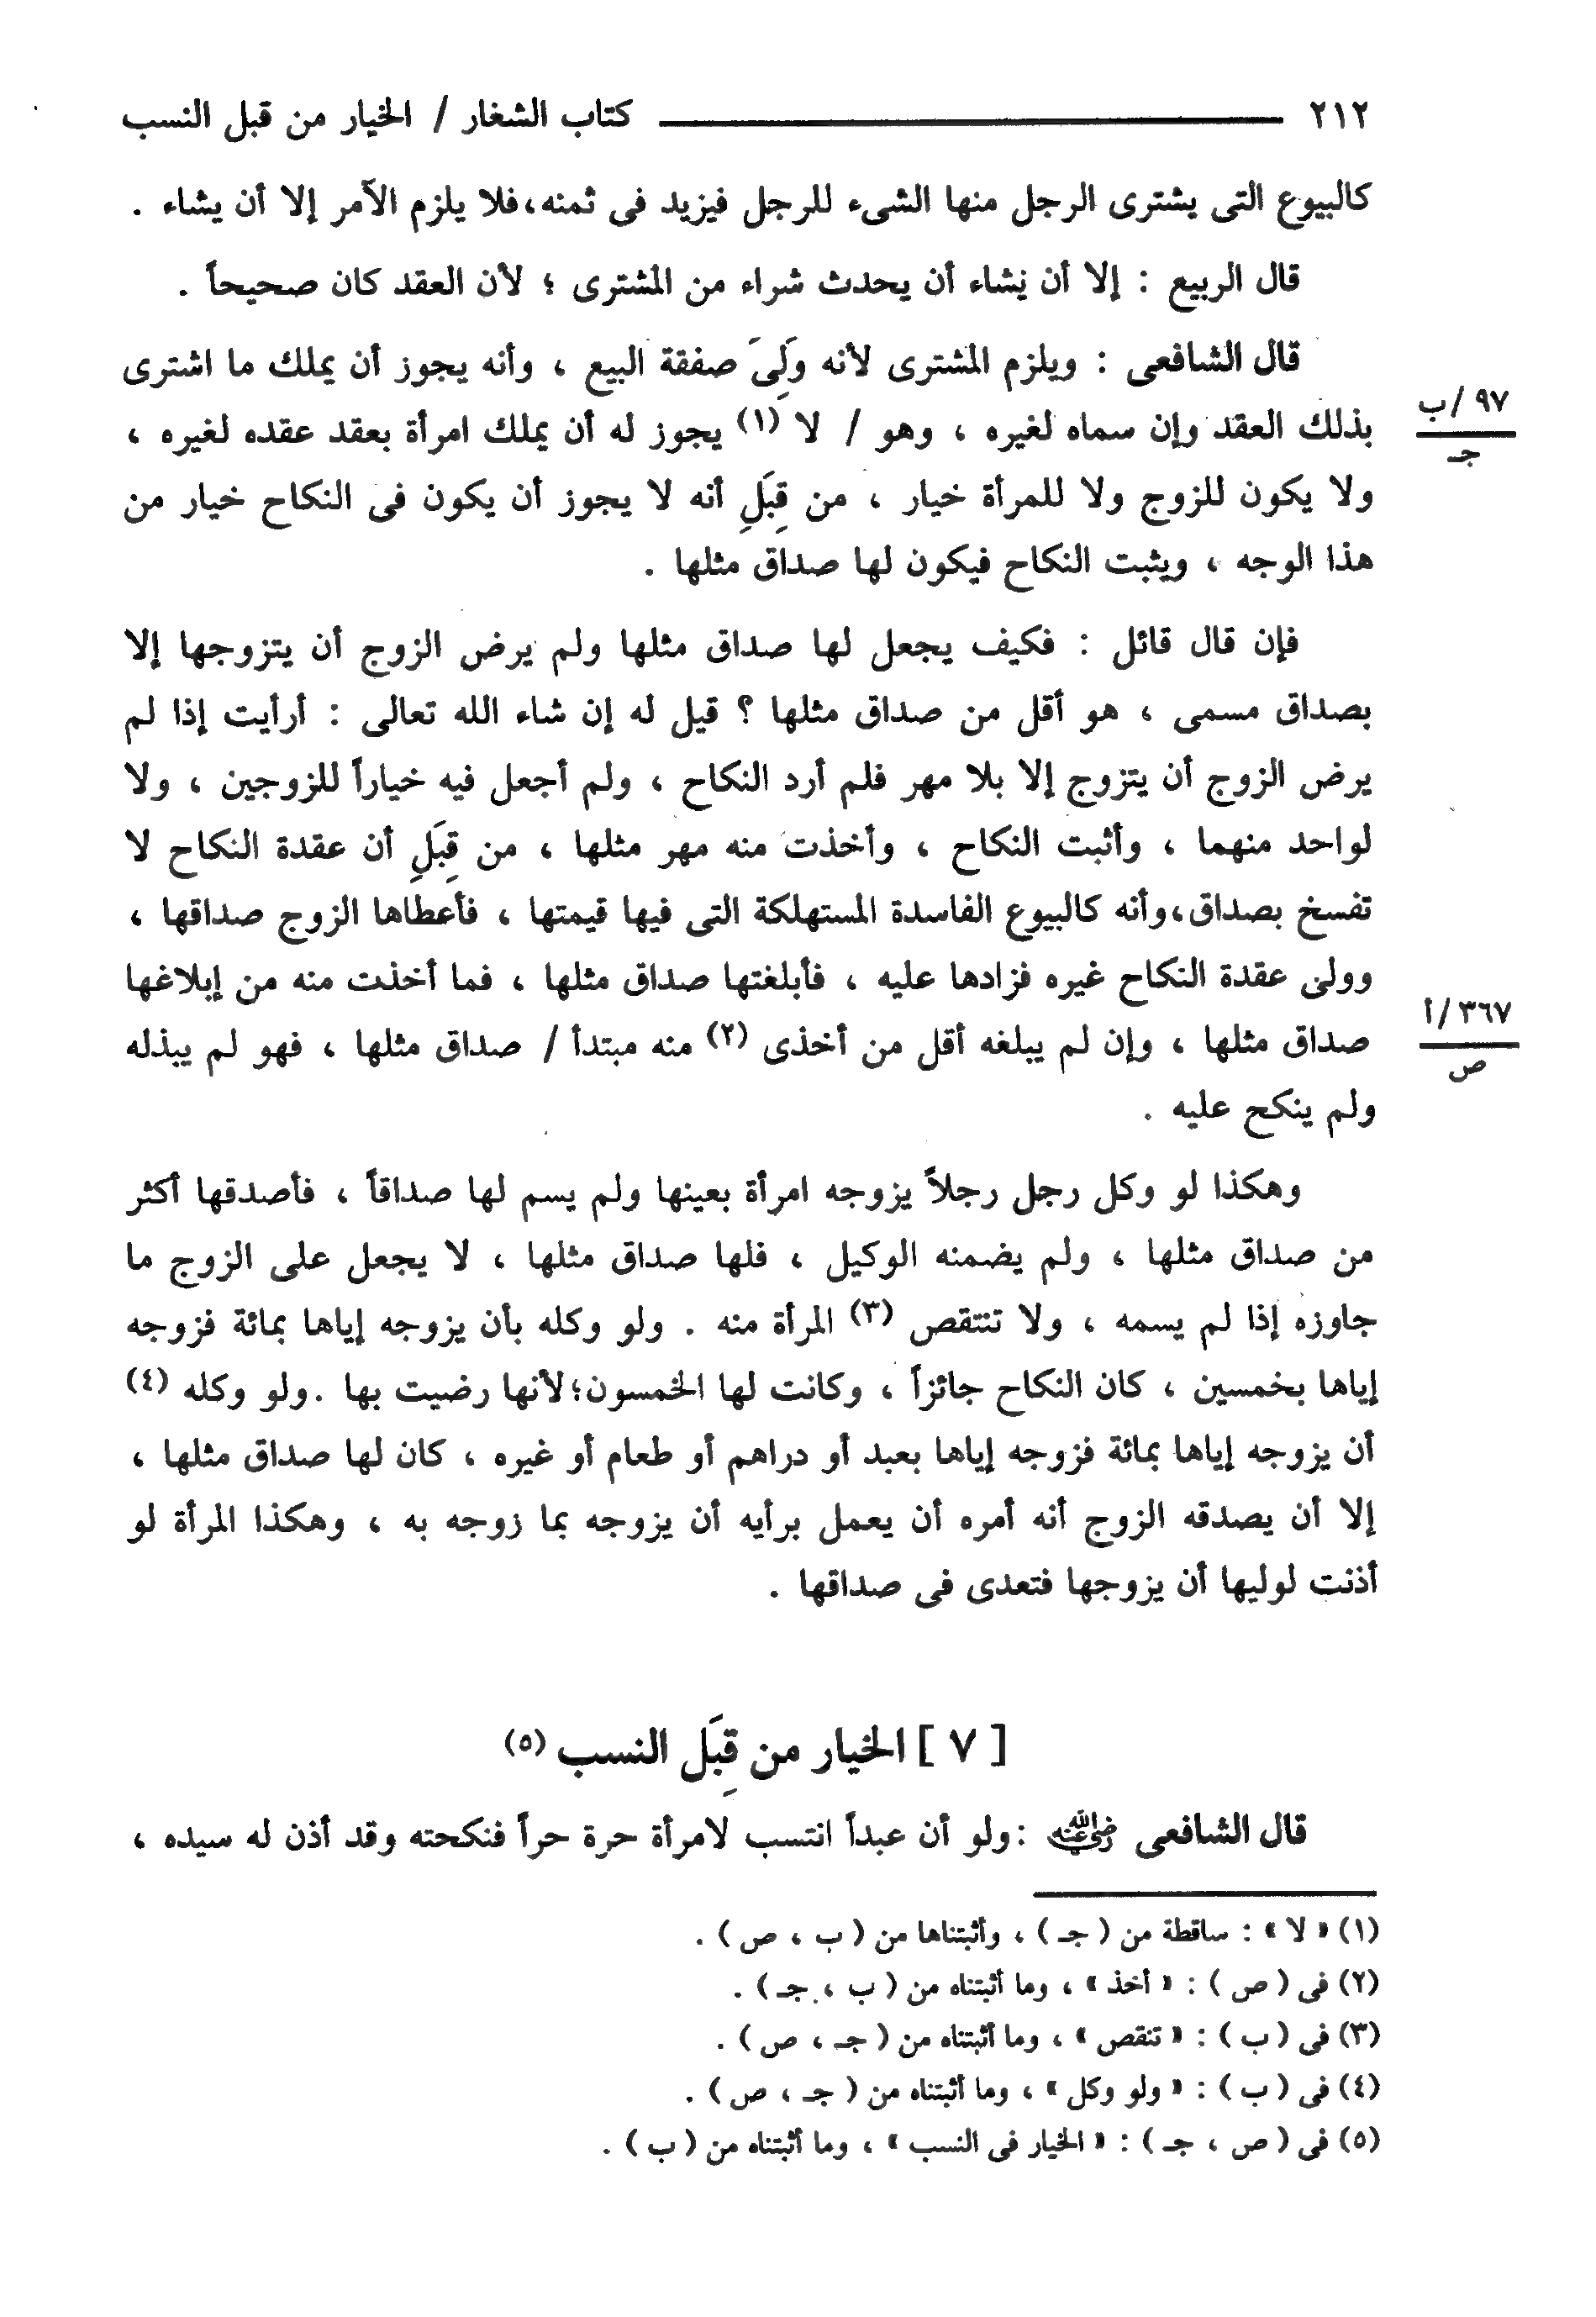 ٢١٢ كتاب الشغار / الخيار من قبل النسب
كالبيوع التى يشترى الرجل منها الشىء للرجل فيزيد فى ثمنه،فلا يلزم الآمر إلا أن يشاء .
قال الربيع : إلا أن يَشاء أن يحدث شراء من المشترى ؛ لأن العقد كان صحيحاً .
قال الشافعى : ويلزم المشترى لأنه وَلِىَ صفقة البيع ، وأنه يجوز أن يملك ما اشترى
بذلك العقد وإن سماه لغيره ، وهو / لا (١) يجوز له أن يملك امرأة بعقد عقده لغيره ،
٩٧ /ب
جـ
ولا يكون للزوج ولا للمرأة خيار ، من قِبَلِ أنه لا يجوز أن يكون فى النكاح خيار من
هذا الوجه ، ويثبت النكاح فيكون لها صداق مثلها .
فإن قال قائل : فكيف يجعل لها صداق مثلها ولم يرض الزوج أن يتزوجها إلا
بصداق مسمى ، هو أقل من صداق مثلها ؟ قيل له إن شاء الله تعالى : أرأيت إذا لم
يرض الزوج أن يتزوج إلا بلا مهر فلم أرد النكاح ، ولم أجعل فيه خياراً للزوجين ، ولا
لواحد منهما ، وأثبت النكاح ، وأخذت منه مهر مثلها ، من قِبَلِ أن عقدة النكاح لا
تفسخ بصداق،وأنه كالبيوع الفاسدة المستهلكة التى فيها قيمتها ، فأعطاها الزوج صداقها ،
وولى عقدة النكاح غيره فزادها عليه ، فأبلغتها صداق مثلها ، فما أخذت منه من إبلاغها
صداق مثلها ، وإن لم يبلغه أقل من أخذى (٢) منه مبتدأ / صداق مثلها ، فهو لم يبذله
٣٦٧ /أ
ص
ولم ينكح عليه .
وهكذا لو وكل رجل رجلاً يزوجه امرأة بعينها ولم يسم لها صداقاً ، فأصدقها أكثر
من صداق مثلها ، ولم يضمنه الوكيل ، فلها صداق مثلها ، لا يجعل على الزوج ما
جاوزه إذا لم يسمه ، ولا تنتقص (٣) المرأة منه . ولو وكله بأن يزوجه إياها بمائة فزوجه
إياها بخمسين ، كان النكاح جائزاً ، وكانت لها الخمسون؛لأنها رضيت بها .ولو وكله (٤)
أن يزوجه إياها بمائة فزوجه إياها بعبد أو دراهم أو طعام أو غيره ، كان لها صداق مثلها ،
إلا أن يصدقه الزوج أنه أمره أن يعمل برأيه أن يزوجه بما زوجه به ، وهكذا المرأة لو
أذنت لوليها أن يزوجها فتعدى فى صداقها .
[ ٧ ] الخيار من قِبَل النسب (٥)
قال الشافعى رضي الله عنه :ولو أن عبداً انتسب لامرأة حرة حراً فنكحته وقد أذن له سيده ،
(١) « لا » : ساقطة من ( جـ ) ، وأثبتناها من ( ب ، ص ) .
(٢) فى ( ص ) : « أخذ » ، وما أثبتناه من ( ب ، جـ ) .
(٣) فى ( ب ) : « تنقص » ، وما أثبتناه من ( جـ ، ص ) .
(٤) فى ( ب ) : « ولو وكل » ، وما أثبتناه من ( جـ ، ص ) .
(٥) فى ( ص ، جـ ) : « الخيار فى النسب » ، وما أثبتناه من ( ب ) .